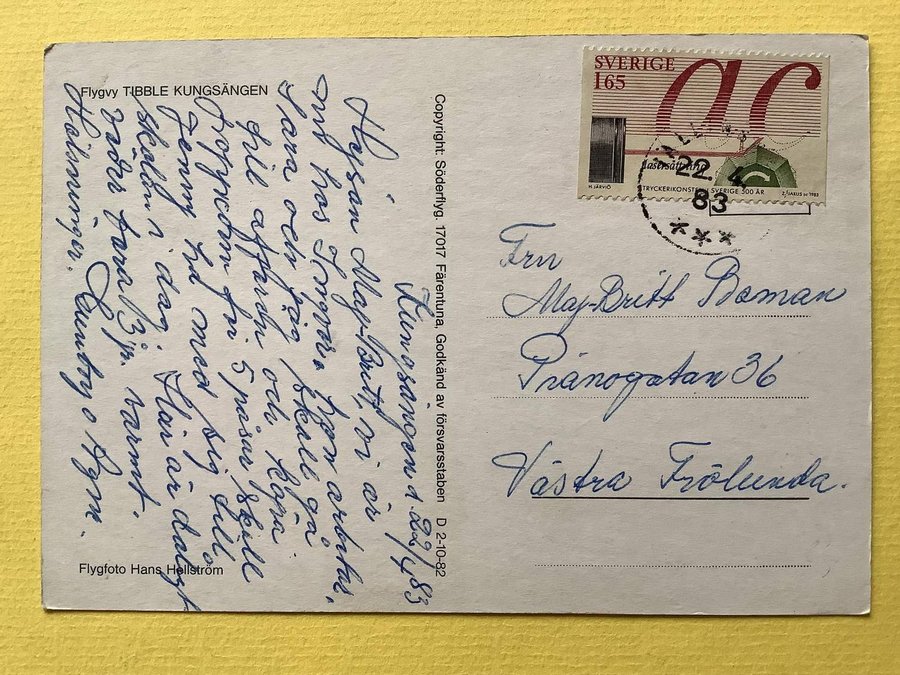 Flygvy TIBBLE KUNGSÄNGEN
Kungsängen d. 22/4 83
Hysan Maj-Britt, vi är
nu hos Ingvar, han arbetar,
Sara och jag skall gå
till affären och köpa
popcorn for 5 påsar skall
Jenny ha med sig till
skolan i dag. Här är daligt
väder bara 3 gr. varmt.
Hälsningar.
Flygfoto Hans Hellström
Copyright: Söderflyg. 17017 Färentuna, Godkänd av försvarsstaben D 2-10-82
SVERIGE
165
ac
Lasersättning
H. JÄRVIÖ
TRYCKERIKONSTEN I SVERIGE 500 ÅR
Z. JAKUS sc 1983
22. 4.
83
***
Fru
Maj-Britt Boman
Pianogatan 36
Västra Frölunda.